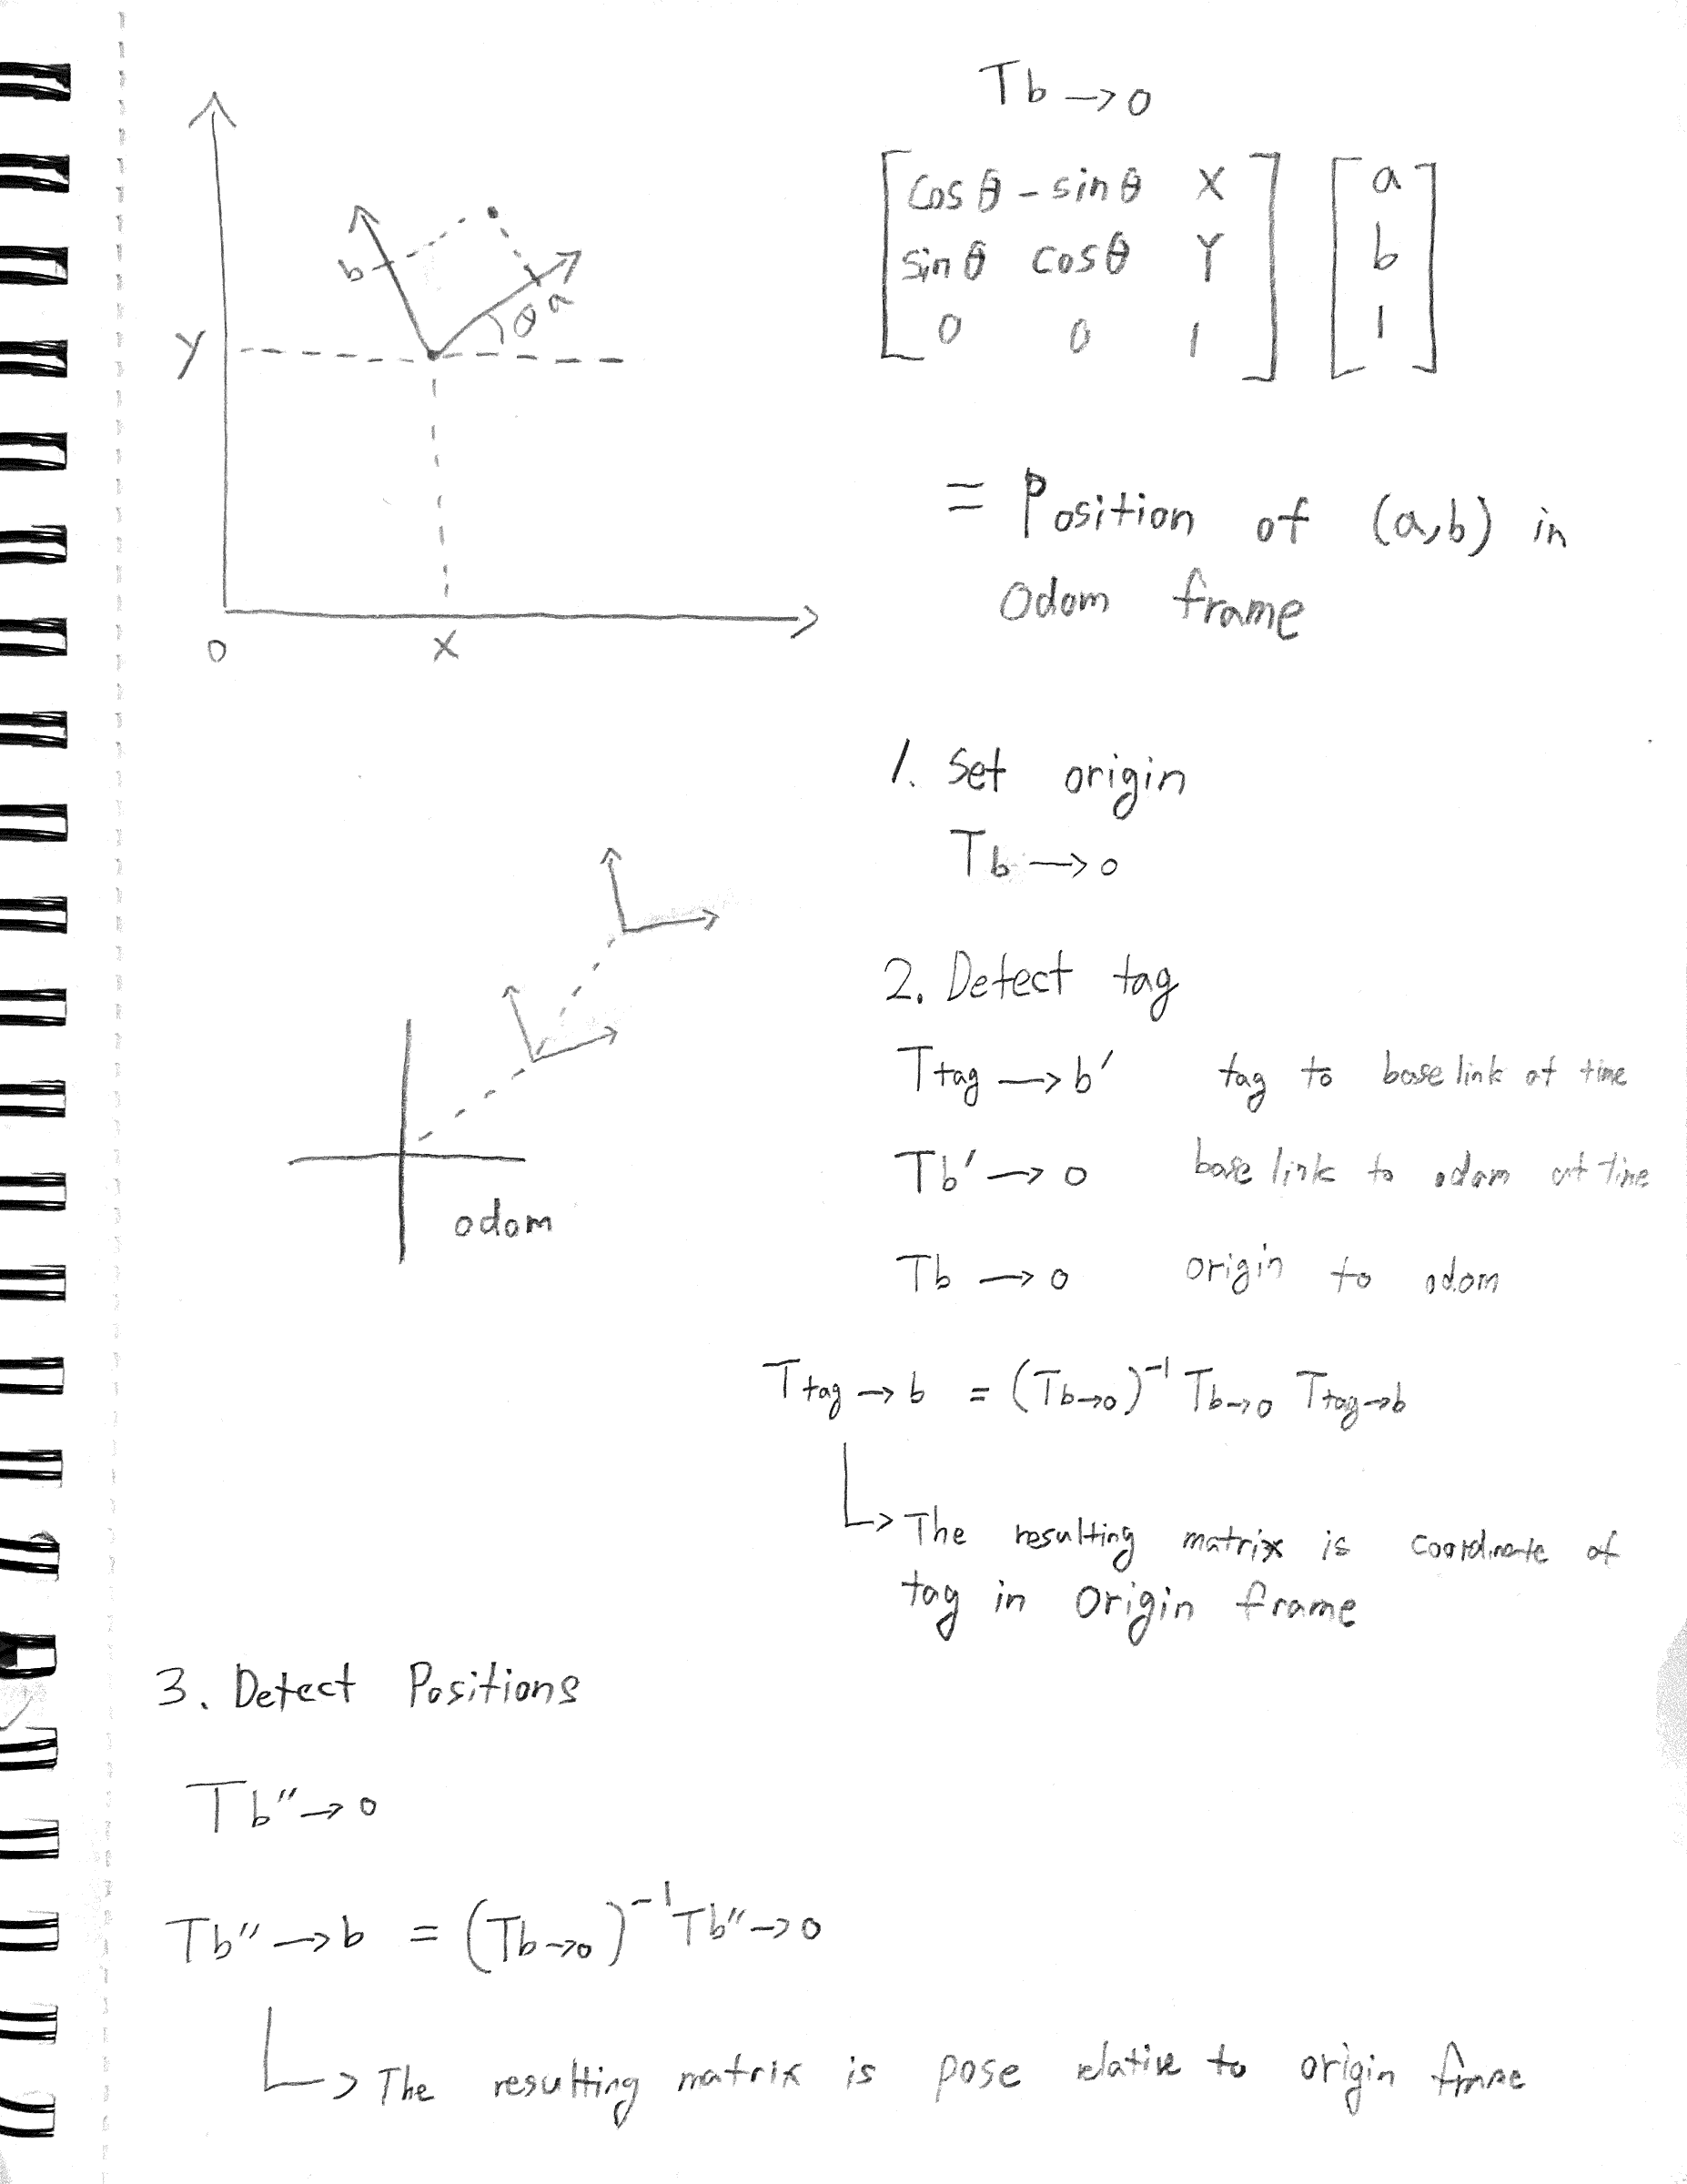 Tb → 0
cosθ -sinθ X
sinθ cosθ Y
0 0 1
a
b
1
b
a
θ
Y
0
X
= Position of (a,b) in
Odom frame
1. Set origin
Tb → 0
2. Detect tag
Ttag → b' tag to base link at time
Tb' → 0 base link to odom at time
Tb → 0 origin to odom
odom
Ttag → b = (Tb→0)⁻¹ Tb→0 Ttag→b
↳ The resulting matrix is coordinate of
tag in Origin frame
3. Detect Positions
Tb'' → 0
Tb'' → b = (Tb→0)⁻¹ Tb'' → 0
↳ The resulting matrix is pose relative to origin frame